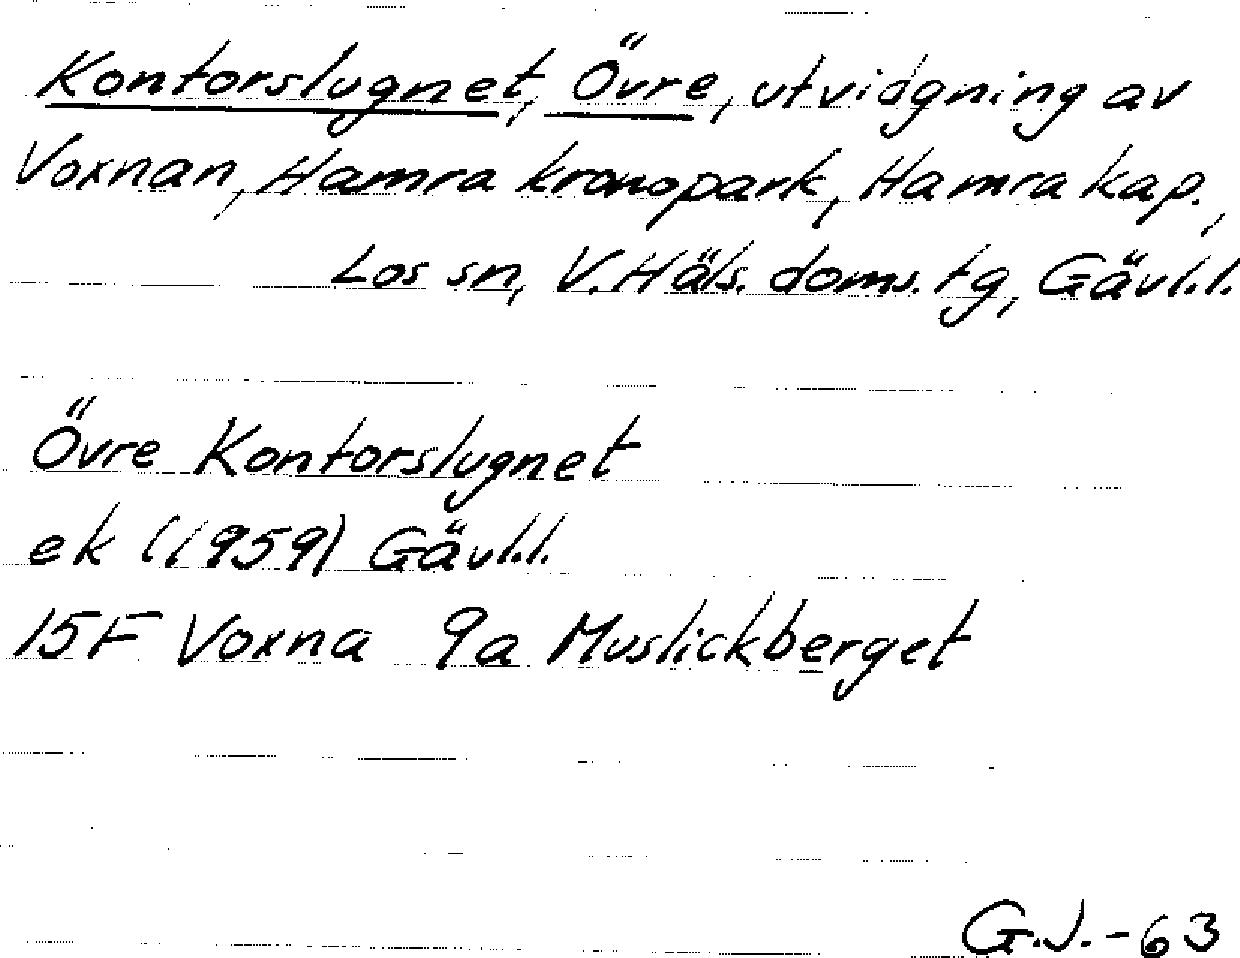 Kontorslugnet, Övre, utvidgning av
Voxnan, Hamra kronopark, Hamra kap.,
Los sn, V. Häls. doms. tg, Gävl.l.
Övre Kontorslugnet
ek (1959) Gävl.l.
15F Voxna 9a Muslickberget
G.J.-63